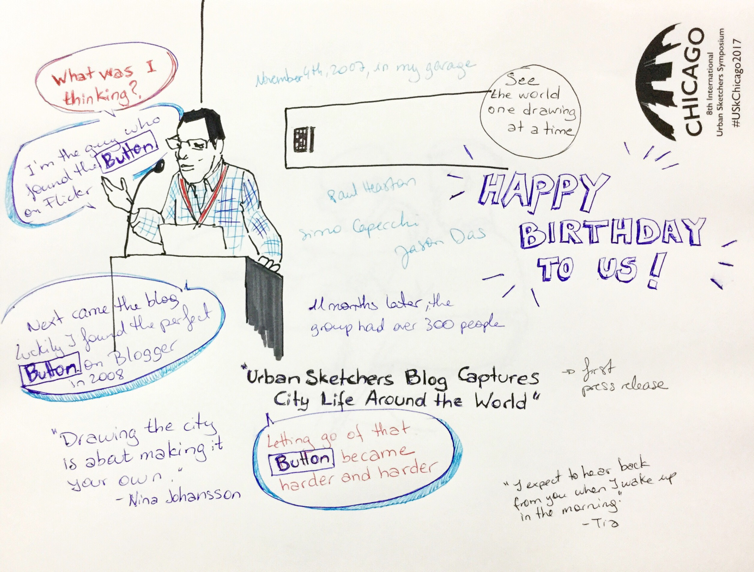 What was I
thinking?
I'm the guy who
found the Button
on Flickr
November 4th, 2007, in my garage
See
the world
one drawing
at a time
CHICAGO
8th International
Urban Sketchers Symposium
#USkChicago2017
HAPPY
BIRTHDAY
TO US!
Paul Heaston
Simo Capecchi
Jason Das
Next came the blog
luckily I found the perfect
Button on Blogger
in 2008
11 months later, the
group had over 300 people
"Urban Sketchers Blog Captures
City Life Around the World"
→ first
press release
"Drawing the city
is about making it
your own."
- Nina Johansson
Letting go of that
Button became
harder and harder
"I expect to hear back
from you when I wake up
in the morning."
- Tia